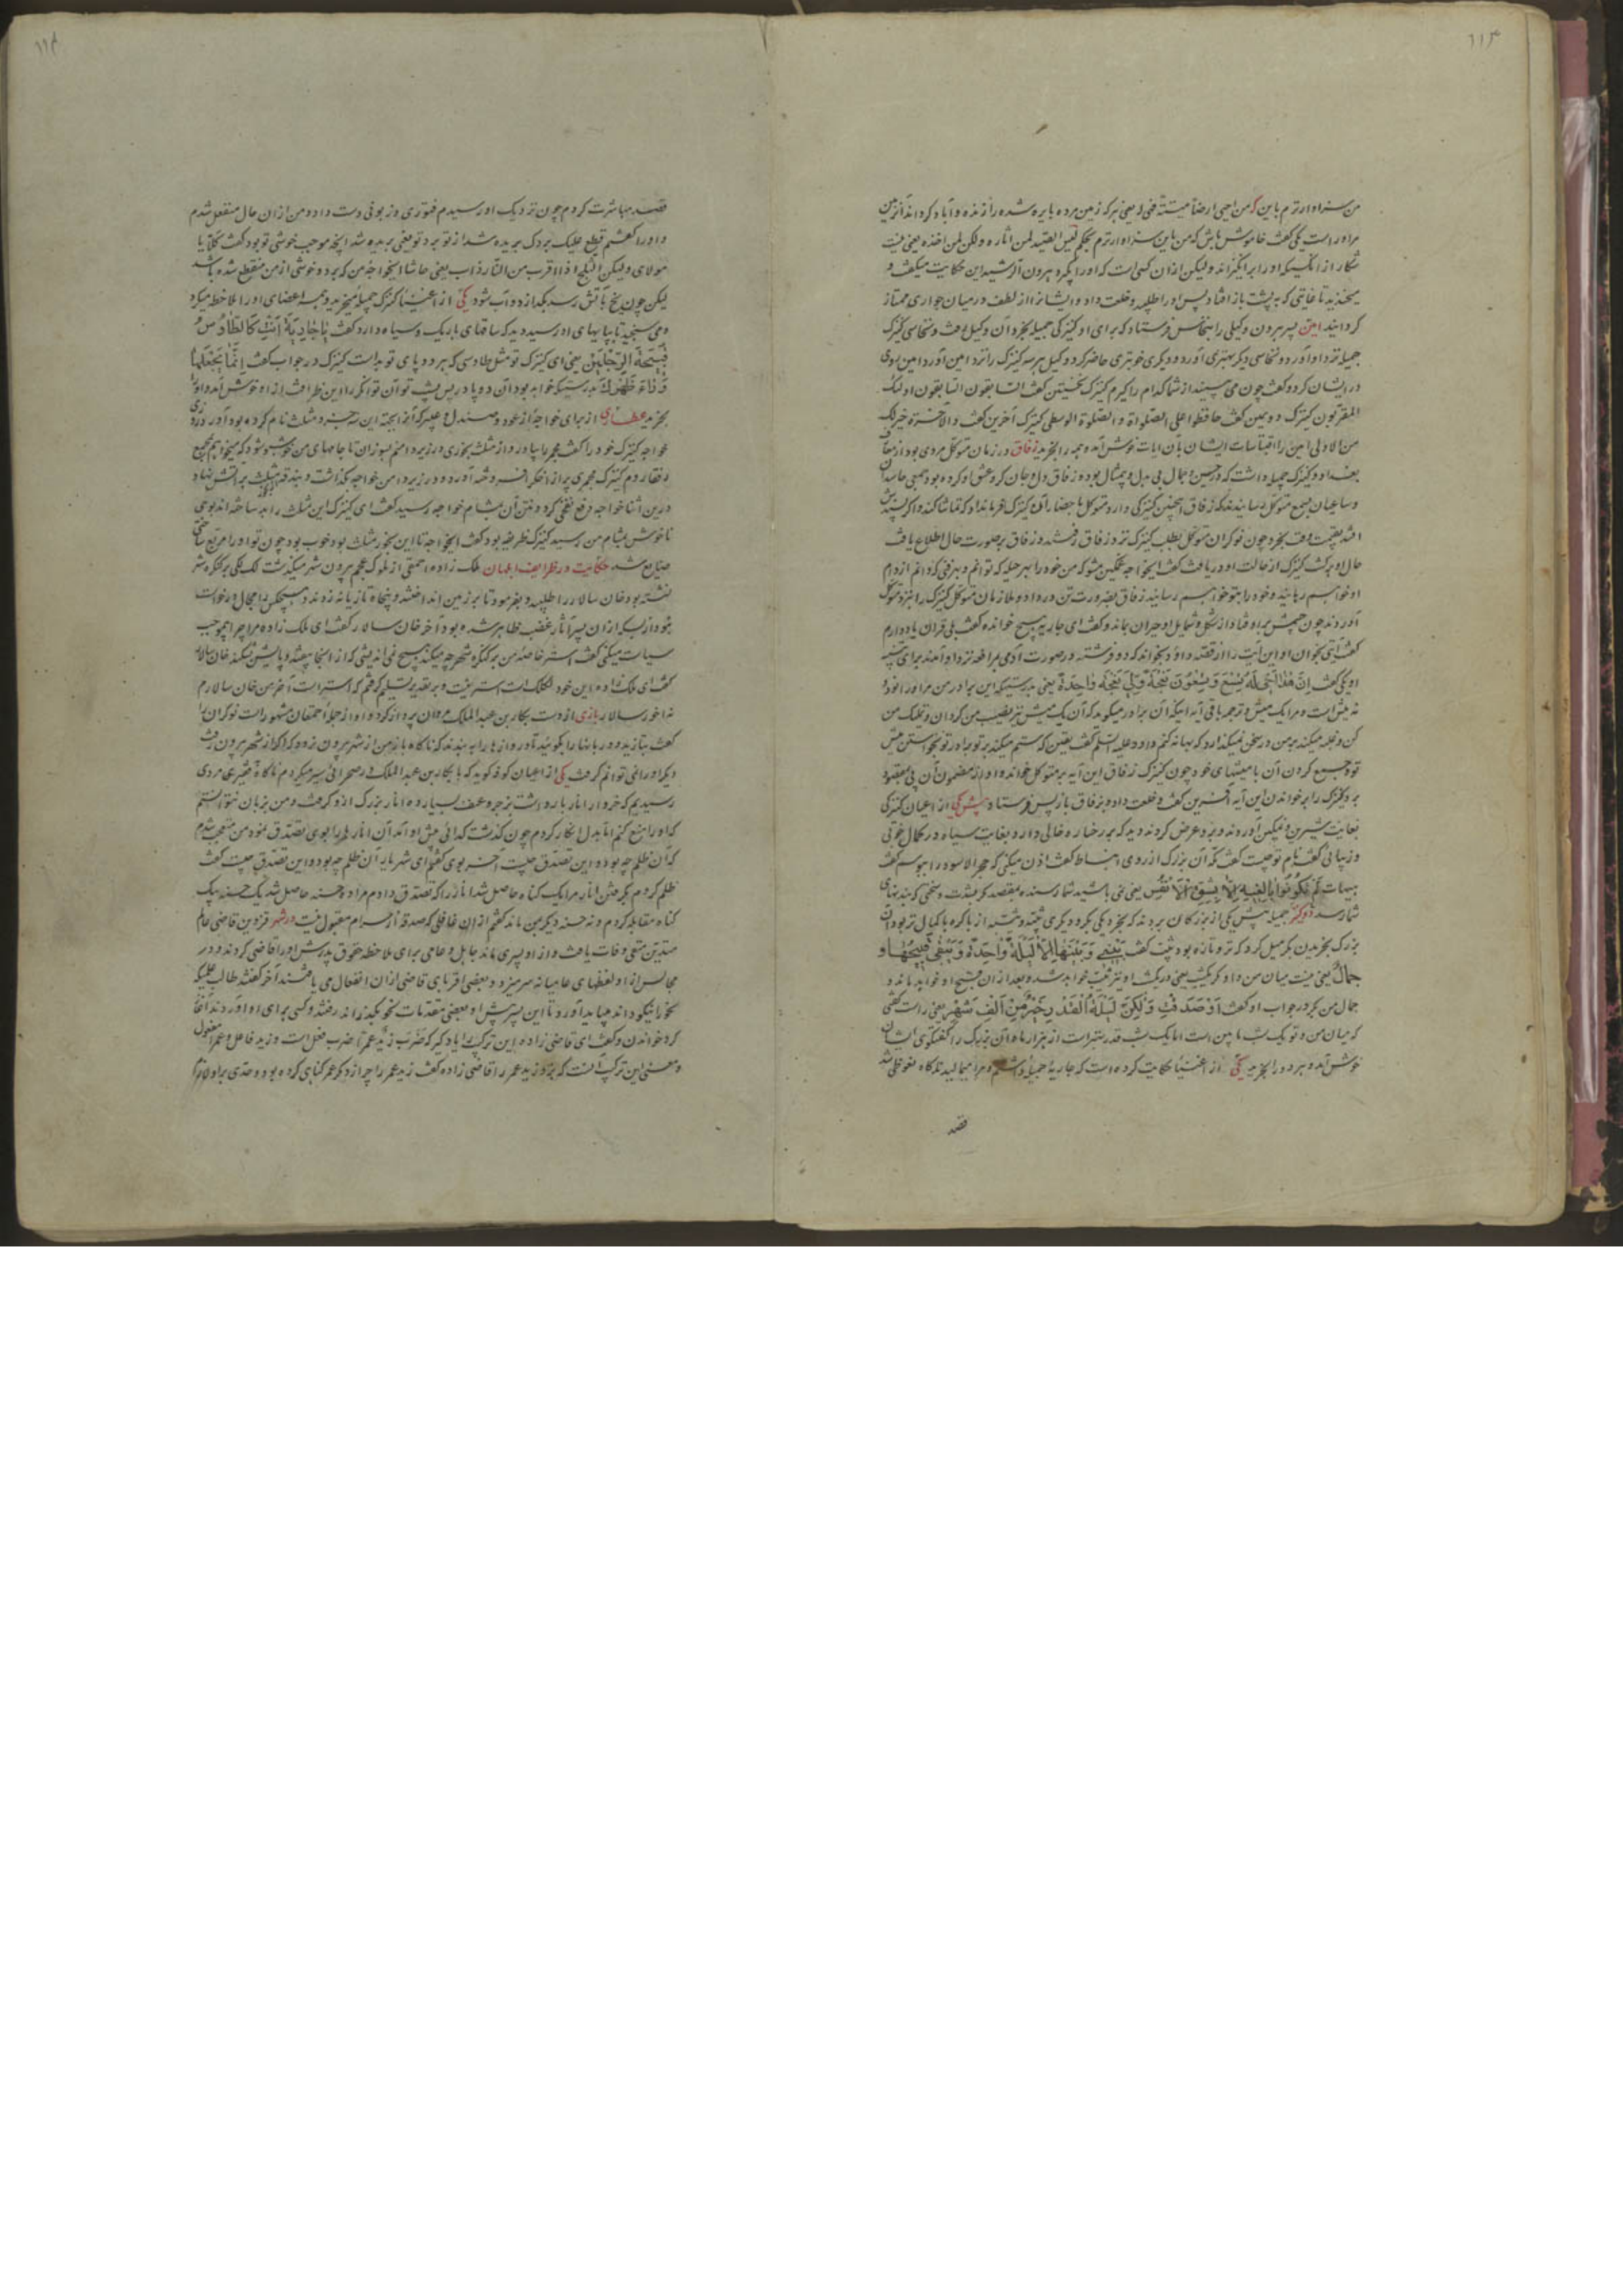 من سزاوارترم باین که من احیی ارضا میتة فهی له یعنی هر که زمین مرده بایره شده را زنده و آباد کرداند آن زمین
مر او راست یکی گفت خاموش باش که من باین سزاوارترم بحکم لیس الصید لمن اثاره ولکن لمن اخذه یعنی نیست
شکار از انکسیکه او را برانکیزاند ولیکن ازان کسی است که او را بگیرد هرون الرشید این حکایت میگفت و
میخندید تا غایتی که به پشت باز افتاد پس او را طلبید و خلعت داد و ایشانرا از لطف در میان جواری ممتاز
کردانید امین پسر هرون وکیلی را بنخاس فرستاد که برای او کنیزکی جمیله بخرد آن وکیل برفت و نخاسی کنیزک
جمیله نزد او آورد و نخاسی دیگر بهتری آورد و دیگری خوبتری حاضر کرد وکیل هر سه کنیزک را نزد امین آورد امین روی
در ایشان کرد و گفت چون می بینید از شما کدام را گیرم کنیزک نخستین گفت السابقون السابقون اولئک
المقربون کنیزک دویمین گفت حافظوا علی الصلواة و الصلوة الوسطی کنیزک آخرین گفت و الآخرة خیر لک
من الاولی امین را اقتباسات ایشان بآن ایات خوش آمده همه را بخرید زفاق در زمان متوکل مردی بود از
بغداد و کنیزک جمیله داشت که در حسن و جمال بی بدل و بیمثال بوده زفاق دل و جان کرو عشق او کرده بود جمعی حاسدان
و ساعیان بسمع متوکل رسانیدند که زفاق اینچنین کنیزکی دارد متوکل باحضار آن کنیزک فرمان داد که تماشا کند و اگر پسندش
افتد بقیمت وقت بخرد چون نوکران متوکل بطلب کنیزک نزد زفاق رفتند و زفاق بر صورت حال اطلاع یافت
حال او برگشت کنیزک از حالت او دریافت گفت ایخواجه غمگین مشو که من خود را بهر حیله که توانم و بهر فنی که دانم از دام
او خواهم رهانید و خود را بتو خواهم رسانید زفاق بضرورت تن در داد و ملازمان متوکل کنیزک را نزد متوکل
آوردند چون چشمش بر او فتاد از شکل و شمایل او حیران بماند و گفت ای جاریه هیچ خوانده گفت بلی قران یاد دارم
گفت آیتی بخوان او این آیت را از قصه داود بخواند که دو فرشته در صورت آدمی بمرافعه نزد او آمدند برای تنبیه
او یکی گفت اِنَّ هٰذَا اَخِی لَهُ تِسْعٌ وَ تِسْعُونَ نَعْجَةً وَ لِیَ نَعْجَةٌ وَاحِدَةٌ یعنی بدرستیکه این برادر من مر او را نود و
نه میش است و مرا یک میش و ترجمه باقی آیه اینکه آن برادر میگوید که آن یک میش نیز نصیب من کردان و تملک من
کن و غلبه میکند بر من در سخن نمیگذارد که بهانه کنم داود علیه السلم گفت بیقین که ستم میکند بر تو برادر تو بخواستن میش
تو و جمع کردن آن با میشهای خود چون کنیزک زفاق این آیه بر متوکل خوانده او از مضمون آن پی بمقصود
برد کنیزک را بر خواندن این آیه آفرین گفت و خلعت داد و بزفاق باز پس فرستاد پیش یکی از اعیان کنیزکی
بغایت شیرین و نمکین آوردند و برو عرض کردند دید که بر رخساره خالی دارد بغایت سیاه در کمال خوبی
و زیبائی گفت نام تو چیست گفت مکه آن بزرک از روی انبساط گفت اذن میکنی که حجر الاسود را ببوسم گفت
هیهات لَمْ تَکُونُوا بَالِغِیهِ اِلّا بِشِقِّ الْاَنْفُسِ یعنی نمی باشید شما رسنده بمقصد مگر بمشقت و سختی که بتنهای
شما رسد دو کنیز جمیله پیش یکی از بزرکان بردند که بخرد یکی بکر و دیگری ثیبه ...
بزرک بخریدن بکر میل کرد که تر و تازه بود ثیب گفت بَیْنِی وَ بَیْنَهَا اِلّا لَیْلَةٌ وَاحِدَةٌ وَ یَبْقٰی قَبِیحُهَا وَ
جمال یعنی نیست میان من و او که بکر است مگر یکشب ... خواهد شد و بعد ازان قبح او خواهد ماند و
جمال من بکر در جواب او گفت اَوَ صَدَقْتِ وَلٰکِنْ لَیْلَةُ الْقَدْرِ خَیْرٌ مِنْ اَلْفِ شَهْرٍ یعنی راست گفتی
که میان من و تو یک شب مابین است اما یک شب قدر بهتر است از هزار ماه آن بزرک را گفتگوی ایشان
خوش آمد و هر دو را بخرید یکی از اغنیا حکایت کرده است که جاریه جمیله داشتم و مرا ...
قصد
قصد مباشرت کردم چون نزدیک او رسیدم فتوری و زبونی دست داد و من ازان حال منفعل شدم
و او را گفتم قطع علیک بردک بریده شد از تو برد تو یعنی بریده شد آنچه موجب خوشی تو بود گفت کلا یا
مولای ولیکن الثلج اذا اقرب من النار ذاب یعنی حاشا ایخواجه من که برد و خوشی از من منقطع شده باشد
لیکن چون یخ بآتش رسد بگدازد و آب شود یکی از اغنیا کنیزک جمیله میخرید و همه اعضای او را ملاحظه میکرد
و می سنجید تا بپایهای او رسید دید که ساقهای باریک و سیاه دارد گفت یَا جَارِیَةُ اَنْتِ کَالطَّاوُسِ
قَبِیحَةُ الرِّجْلَیْنِ یعنی ای کنیزک تو مثل طاوسی که هر دو پای تو بد است کنیزک در جواب گفت اِنَّمَا تَجْعَلُهَا
وَرَاءَ ظَهْرِکَ بدرستیکه خواهد بود آن دو پا در پس پشت تو آن توانگر را این ظرافت از او خوش آمد و او را
بخرید عطاری از برای خواجه از عود و صندل و عنبر که آنرا آمیخته این سه جزء و مثلث نام کرده بود آورد روزی
خواجه کنیزک خود را گفت مجمر را بیار و از مثلث بخوری در زیر دامنم بسوزان تا جامهای من خوشبو شود که میخواهم بمجمع
رفقا روم کنیزک مجمری پر از اخکر افروخته آورده و در زیر دامن خواجه گذاشت و بندقه مثلث بر آتش نهاد
درین اثنا خواجه دفع نفخی کرد و نتن آن بمشام خواجه رسید گفت ای کنیزک این مثلث را بد ساخته اند بوی
ناخوش بمشام من رسید کنیزک ظریفه بود گفت ایخواجه تا این بخور مثلث بود خوب بود چون تو او را مربع ساختی
ضایع شد حکایت در ظرایف ابلهان ملک زاده احمقی از ملوک عجم بیرون شهر میگذشت لک لکی بر کنگره شهر
نشسته بود خان سالار را طلبید و بفرمود تا بر زمین انداختند و پنجاه تازیانه زدند و هیچکس را مجال درخواست
نبود از بسکه ازان پسر آثار غضب ظاهر شده بود آخر خان سالار گفت ای ملک زاده مرا چرا بیموجب
سیاست میکنی گفت استر خاصه من بر کنگره شهر چه میکند هیچ نمی اندیشی که از انجا بیفتد و پایش بشکند خان سالار
گفت ای ملک زاده این خود لکلک است استر نیست و بر تقدیر تسلیم گرفتم که استر است آخر من خان سالارم
نه اخور سالار بازی از دست بکار بن عبد الملک مروان پرواز کرد و او از جمله احمقان مشهور است نوکران را
گفت بتازید و دربانها را بگوئید تا دروازها را ببندند که ناگاه باز من از شهر بیرون نرود که اگر از شهر بیرون رفت
دیگر او را نمی توانم گرفت یکی از اعیان کوفه گوید که با بکار بن عبد الملک در صحرائی سیر میکردم ناگاه بفقیری مردی
رسیدیم که خروار انار بار داشت بزجر و عنف بسیار ده انار بزرک ازو گرفت و من بزبان نتوانستم
که او را منع کنم اما بدل انکار کردم چون گذشت گدائی پیش او آمد آن انارها را بوی تصدق نمود من متعجب شدم
که آن ظلم چه بود و این تصدق چیست آخر بوی گفتم ای شهریار آن ظلم چه بود و این تصدق چیست گفت
ظلم کردم بگرفتن انار مرا یک گناه حاصل شد انار را که تصدق دادم مرا ده حسنه حاصل شد یک حسنه بیک
گناه مقابله کردم و نه حسنه دیگر بمن ماند گفتم ازان غافلی که صدقه از حرام مقبول نیست در شهر قزوین قاضی عالم
متدین متقی وفات یافت و ازو پسری ماند جاهل و عامی برای ملاحظه حقوق پدرش او را قاضی کردند و در
مجالس ازو لفظهای عامیانه سر میزد و بعضی اقربای قاضی ازان انفعال می یافتند آخر گفتند طالب علمیکه
نحو نیکو داند بباید آورد تا این پسر پیش او بعضی مقدمات نحو بگذراند رفتند و کسی برای او آوردند آغاز
کرد خواندن و گفت ای قاضی زاده این ترکیب را یاد گیر که ضَرَبَ زَیْدٌ عَمْراً ضرب فعل است و زید فاعل و عمرا مفعول
و معنی این ترکیب آنست که بزد زید عمر را قاضی زاده گفت زید عمر را چرا زد مگر عمر گناهی کرده بود و حدی برو لازم